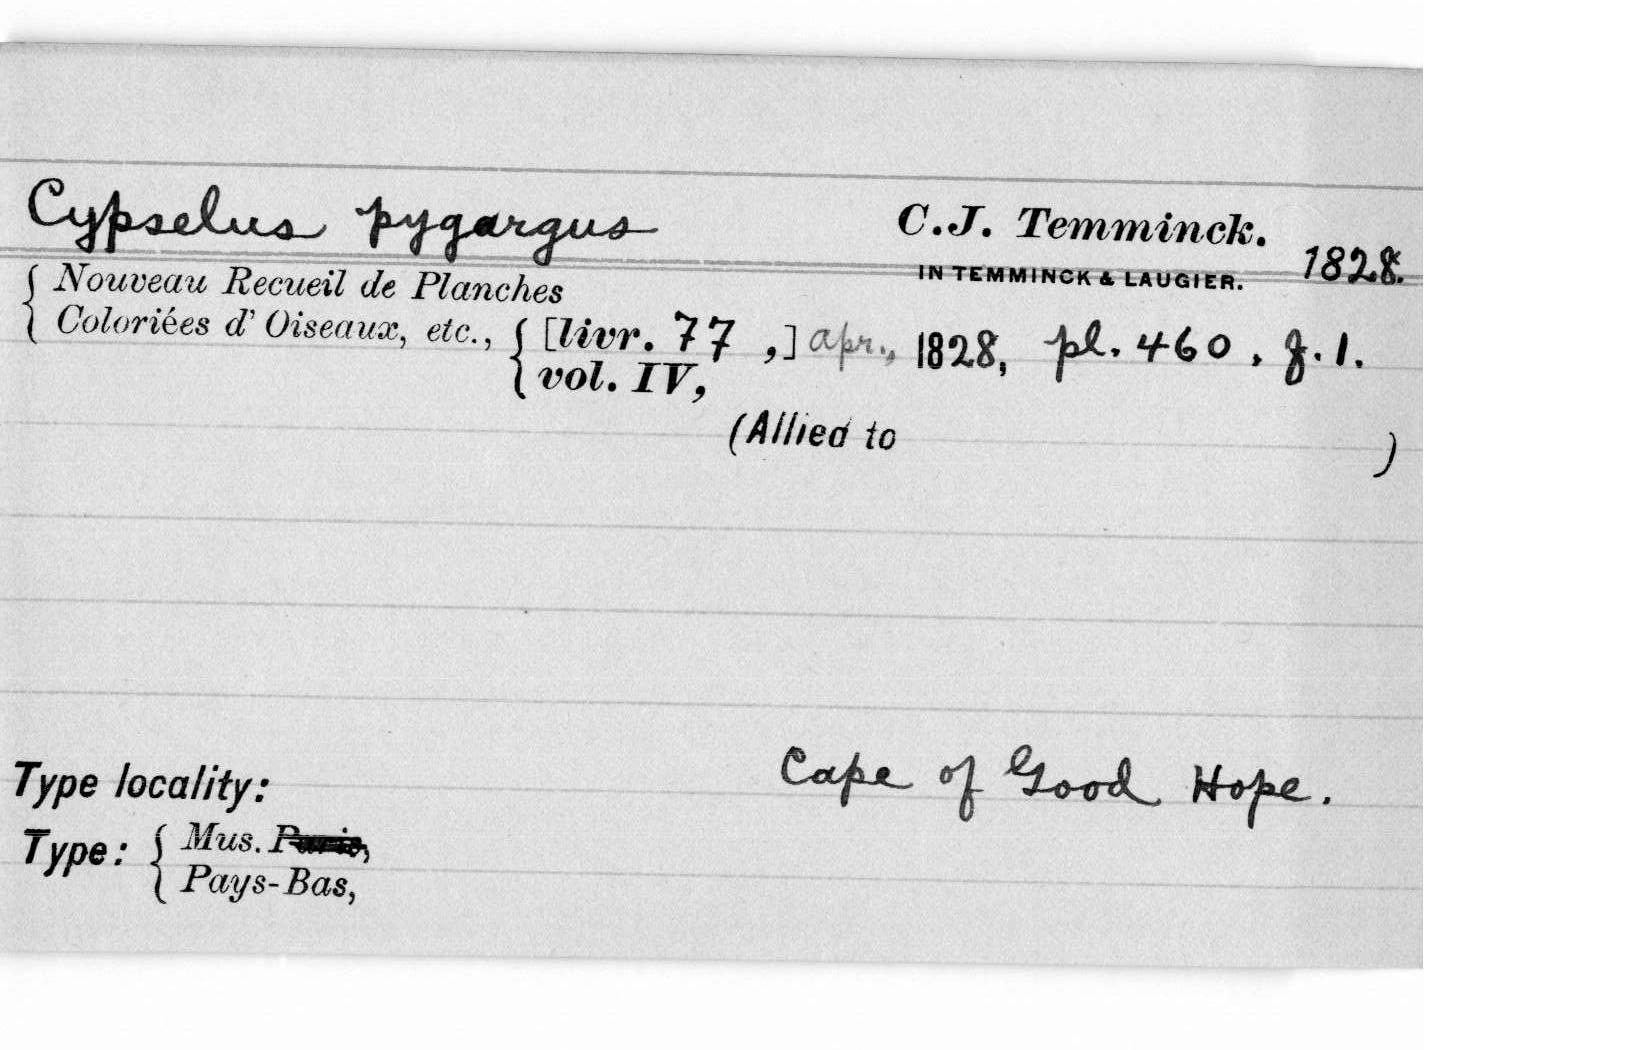 Cypselus pygargus C.J. Temminck.
IN TEMMINCK & LAUGIER. 1828.
{ Nouveau Recueil de Planches
{ Coloriées d' Oiseaux, etc., { [livr. 77 ,] apr., 1828, pl. 460 , f. 1.
{ vol. IV,
(Allied to )
Type locality: Cape of Good Hope.
Type: { Mus. Paris,
{ Pays-Bas,